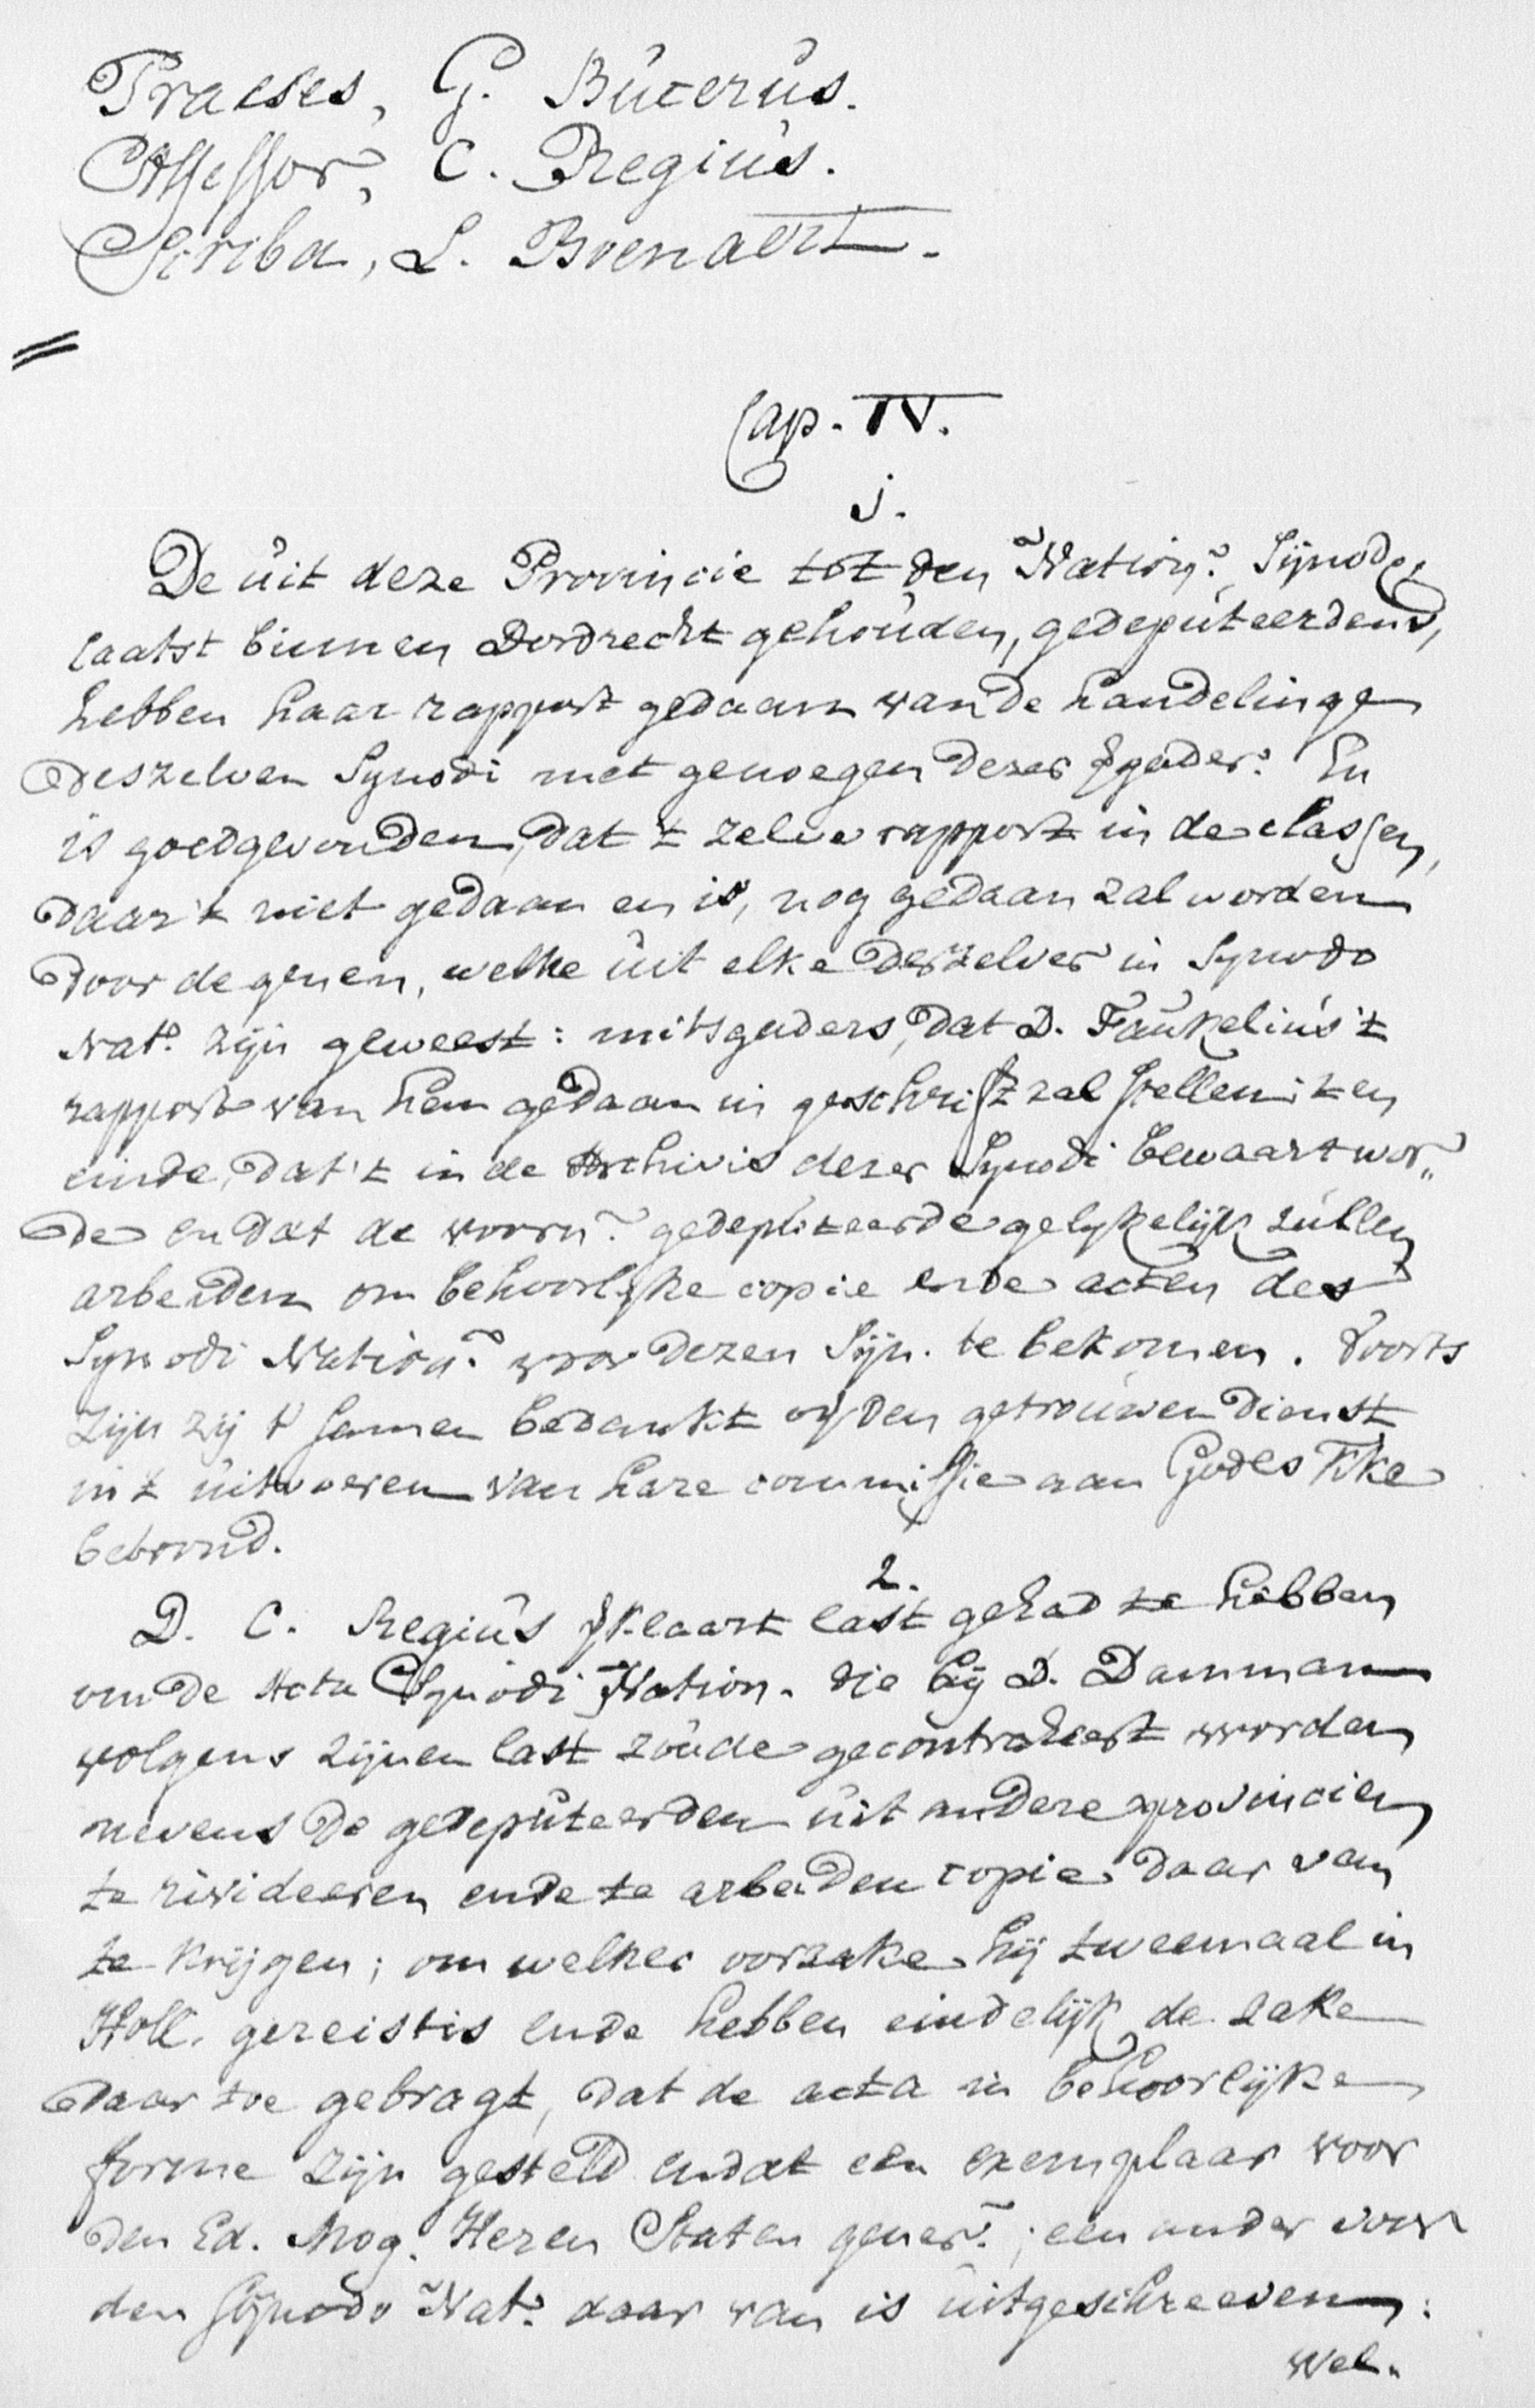 Praeses, G. Bucerus.
Assessor, C. Regius.
Scriba, L. Boenaert.
Cap. IV.
j.
De uit deze Provincie tot den Nation. Synode,
laatst binnen Dordrecht gehouden, gedeputeerdens,
hebben haar rapport gedaan van de handelinge
deszelven Synodi met genoegen dezer Vgader. En
is goedgevonden, dat 't zelve rapport in de classen,
daar 't niet gedaan en is, nog gedaan zal worden
door de genen, welke uit elke derzelver in Synodo
Nat. zijn geweest: mitsgaders, dat D. Faukelius 't
rapport van hem gedaan in geschrift zal stellen: ten
einde, dat 't in de Archivis dezer Synodi bewaart wor„
de en dat de voorn. gedeputeerde gelykelijk zullen
arbeiden om behoorlyke copie ende acten des
Synodi Nation. voor dezen Syn. te bekomen. Voorts
zijn zij t'samen bedankt op den getrouwen dienst
in 't uitvoeren van hare commissie aan Godes Kke
betoond.
2.
D. C. Regius Vklaart last gehad te hebben
om de Acta Synodi Nation. die bij D. Damman
volgens zijnen last zoude gecontraheert worden
nevens de gedeputeerden uit andere provincien
te revideeren ende te arbeiden copie daar van
te krijgen; om welker oorzake hij tweemaal in
Holl. gereist is ende hebben eindelijk de zake
daar toe gebragt, dat de acta in behoorlijke
forme zijn gesteld endat een exemplaar voor
den Ed. Mog. Heren Staten gener.; een ander voor
den Synodo Nat. daar van is uitgeschreeven:
Wel.